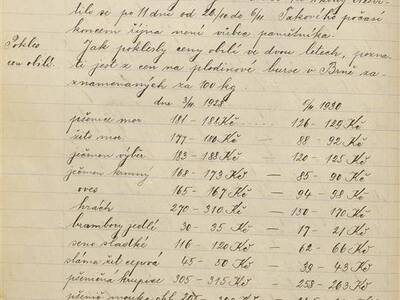 tilo se po 11 dní od 26/10 do 6/11. Takového počasí
koncem října není vůbec pamětníka.
Pokles
cen obilí.
Jak poklesly ceny obilí ve dvou letech, pozna-
ti jest z cen na plodinové burse v Brně za-
znamenaných za 100 kg.
dne 3/11 1928 1930
pšenice mor. 181 - 182 Kč - 126 - 129 Kč
žito mor. 177 - 180 Kč - 88 - 92 Kč
ječmen výběr 183 - 188 Kč - 120 - 125 Kč
ječmen krmný 168 - 173 Kč - 85 - 90 Kč
oves 165 - 167 Kč - 94 - 98 Kč
hrách 270 - 310 Kč - 130 - 170 Kč
brambory jedlé 30 - 35 Kč - 17 - 21 Kč
seno sladké 116 - 120 Kč - 62 - 66 Kč
sláma žit. cepová 45 - 50 Kč - 39 - 43 Kč
pšeničná krupice 305 - 315 Kč - 258 - 263 Kč